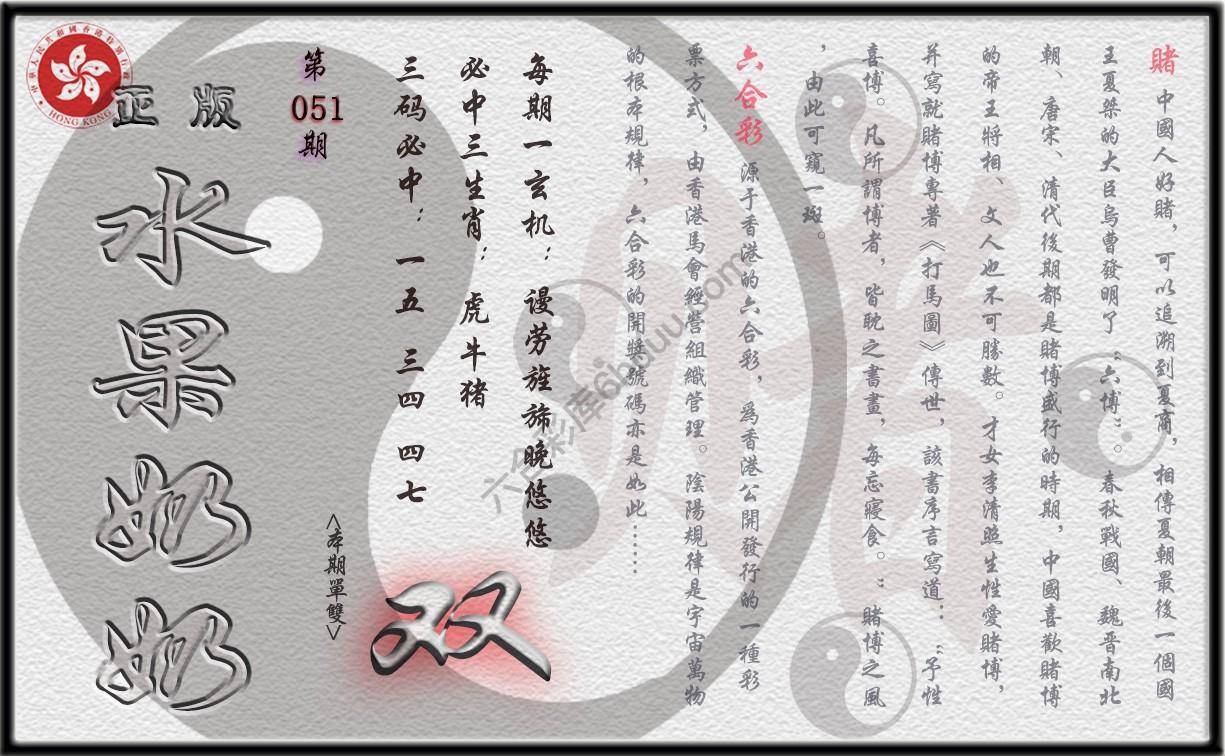 賭 中國人好賭，可以追溯到夏商，相傳夏朝最後一個國
王夏桀的大臣烏曹發明了“六博”。春秋戰國、魏晋南北
朝、唐宋、清代後期都是賭博盛行的時期，中國喜歡賭博
的帝王將相、文人也不可勝數。才女李清照生性愛賭博，
并寫就賭博專著《打馬圖》傳世，該書序言寫道：“予性
喜博。凡所謂博者，皆耽之書畫，每忘寢食。”賭博之風
，由此可窺一斑。
六合彩 源于香港的六合彩，爲香港公開發行的一種彩
票方式，由香港馬會經營組織管理。陰陽規律是宇宙萬物
的根本規律，六合彩的開獎號碼亦是如此……
每期一玄机：谩劳旌旆晚悠悠
必中三生肖：虎牛猪
三码必中：一五 三四 四七
第
051
期
<本期單雙>
双
正版
水果奶奶
HONG KONG
六合彩库6hduu.com